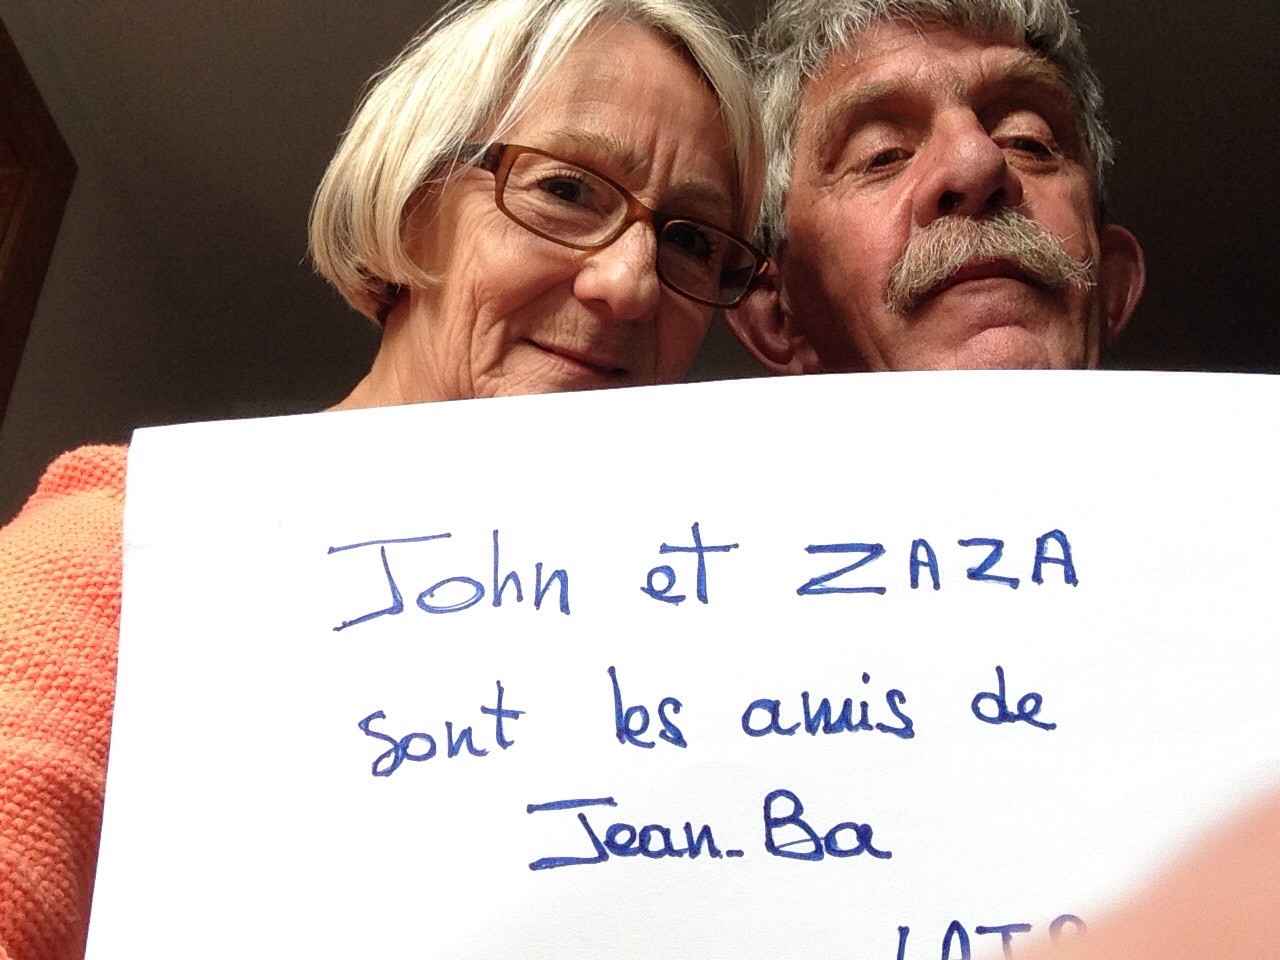 John et ZAZA
sont les amis de
Jean-Ba